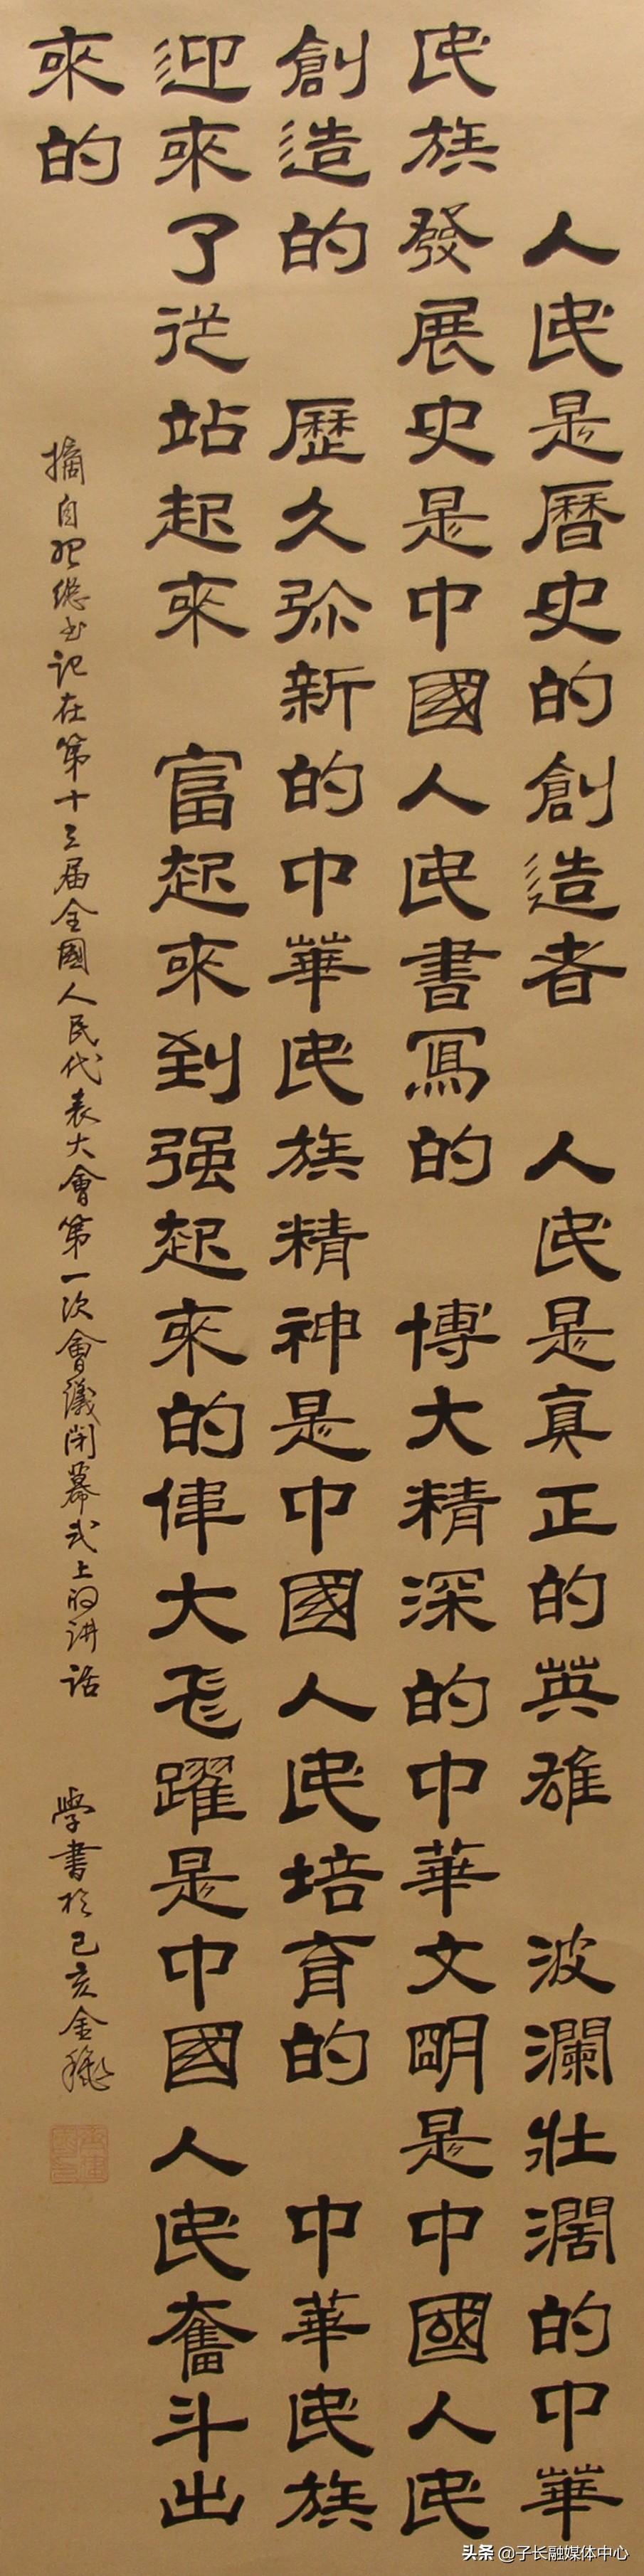 人民是曆史的創造者 人民是真正的英雄 波瀾壯濶的中華
民族發展史是中國人民書寫的 博大精深的中華文明是中國人民
創造的 歷久弥新的中華民族精神是中國人民培育的 中華民族
迎來了從站起來 富起來到强起來的偉大飞躍是中國人民奮斗出
來的
摘自習總书記在第十三届全國人民代表大會第一次會議闭幕式上的讲话
學書於己亥金穐
头条 @子长融媒体中心